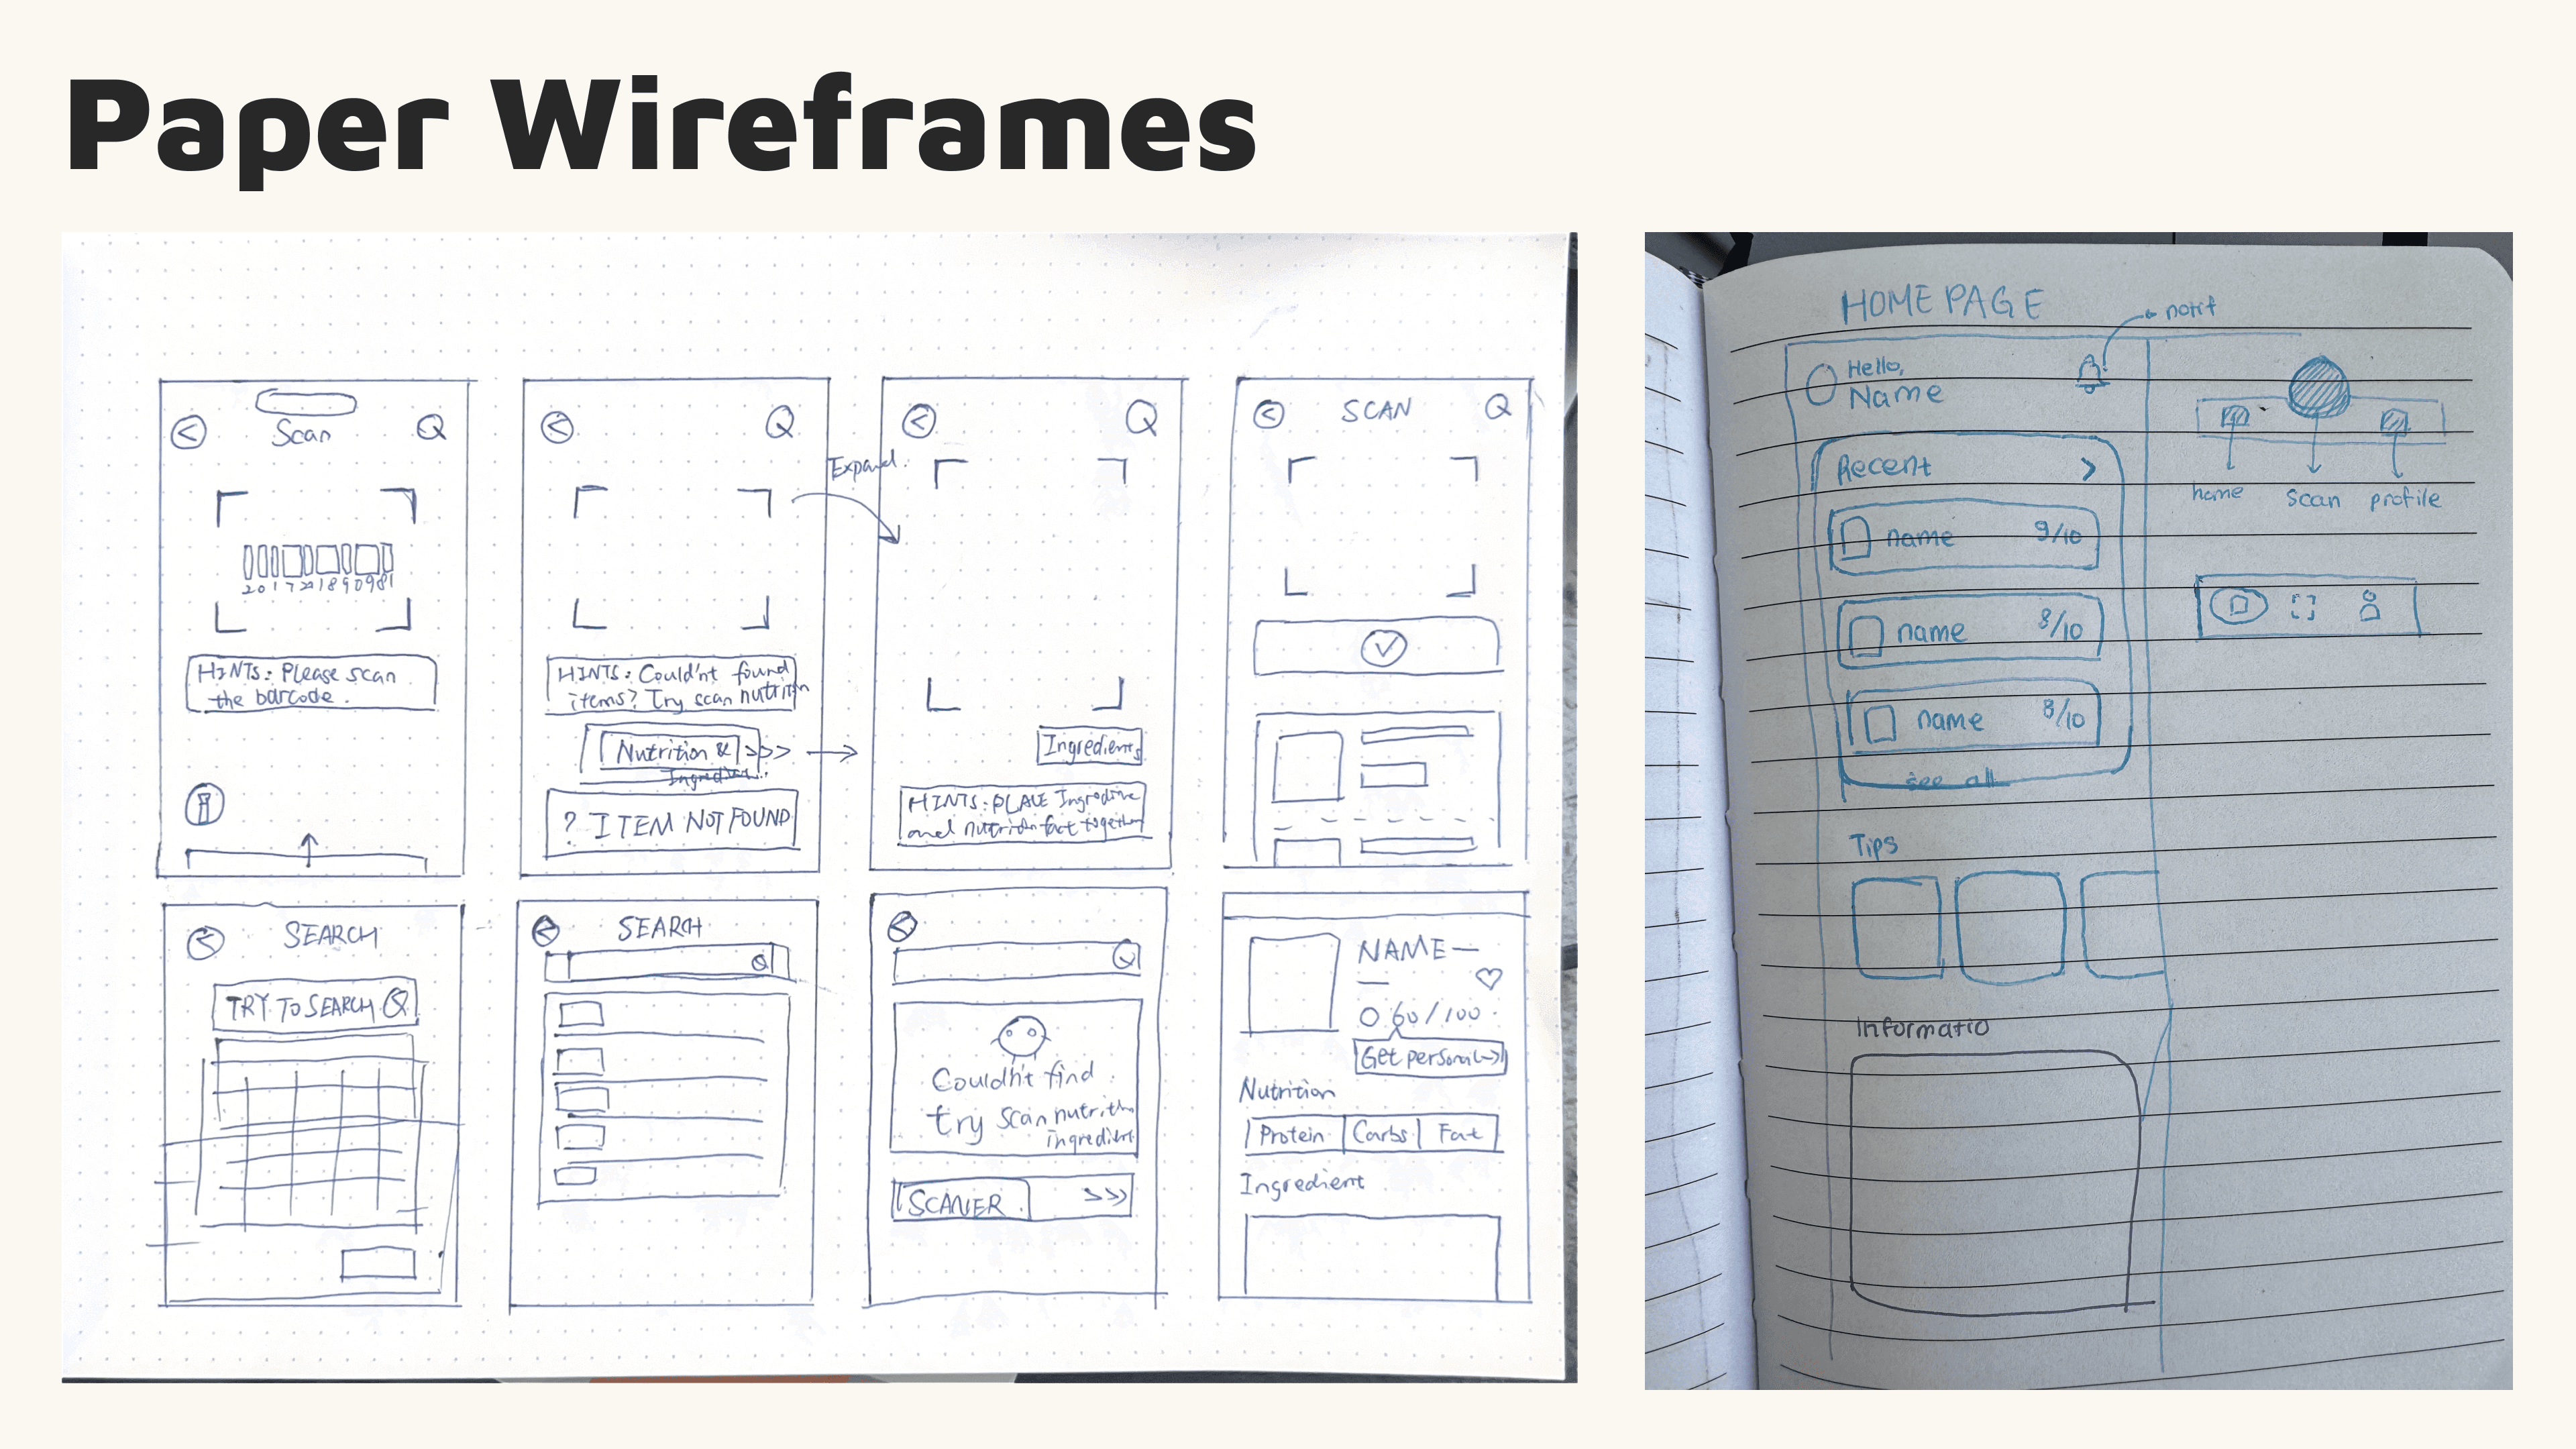 Paper Wireframes
Scan
201722189098 1
HINTS: Please scan
the barcode.
HINTS: Couldn't found
items? Try scan nutrition
Nutrition & >>>
Ingredient..
? ITEM NOT FOUND
Expand.
Ingredients
HINTS: PLACE
and nutrition fact together
SCAN
SEARCH
TRY TO SEARCH
SEARCH
Couldn't find
try scan nutrition
ingredient
SCANER >>>
NAME
60/100
Get personal
Nutrition
Protein Carbs Fat
Ingredient
HOME PAGE
notif
Hello,
Name
Recent >
name 9/10
name 8/10
name 8/10
see all
Tips
Informatio
home scan profile